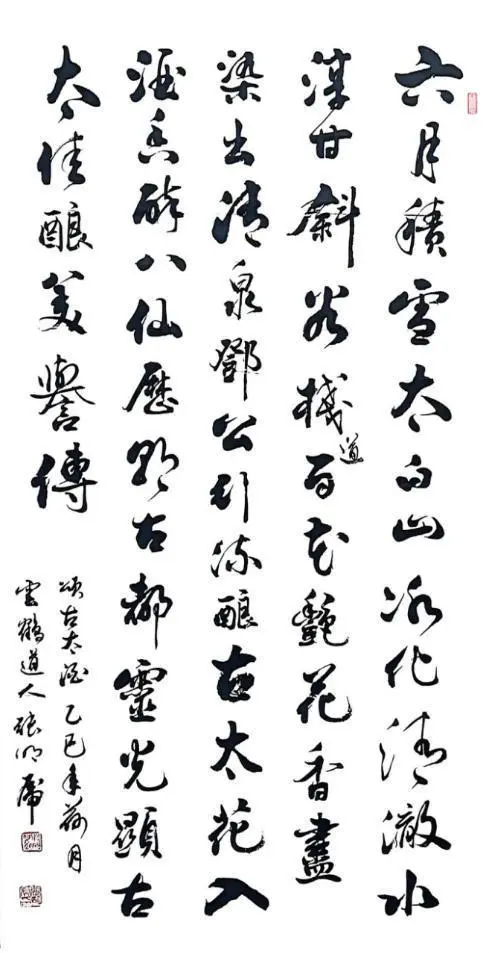 六月積雪太白山冰化清澈水
淳甘斜谷棧道百花艷花香盡
染出清泉鄧公引流酿古太花入
酒香醉八仙歷朝古都靈光顯古
太佳酿美譽傳
頌古太酒乙巳年荷月
雲鶴道人張虎